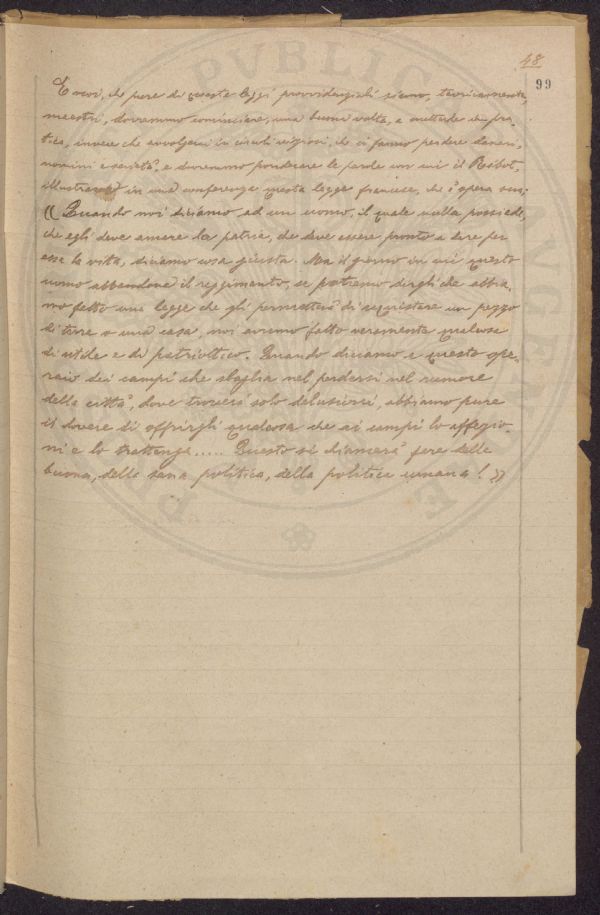 48
99
E noi, che pure di queste leggi provvidenziali siamo, teoricamente,
maestri, dovremmo cominciare, una buona volta, a metterle in pra-
tica, invece che avvolgerci in circoli viziosi, che ci fanno perdere denari,
uomini e serietà, e dovremmo ponderare le parole con cui il Ribot,
illustrava in una conferenza questa legge francese, che è opera sua:
(( Quando noi diciamo ad un uomo, il quale nulla possiede,
che egli deve amare la patria, che deve essere pronto a dare per
essa la vita, diciamo cosa giusta. Ma il giorno in cui questo
uomo abbandona il reggimento, se potremo dirgli che abbia-
mo fatto una legge che gli permetterà di acquistare un pezzo
di terra o una casa, noi avremo fatto veramente qualcosa
di utile e di patriottico. Quando diciamo a questo ope-
raio dei campi che sbaglia nel perdersi nel rumore
della città, dove troverà solo delusioni, abbiamo pure
il dovere di offrirgli qualcosa che ai campi lo affezio-
ni e lo trattenga ..... Questo si chiamerà fare della
buona, della sana politica, della politica umana! ))
PVBLIC